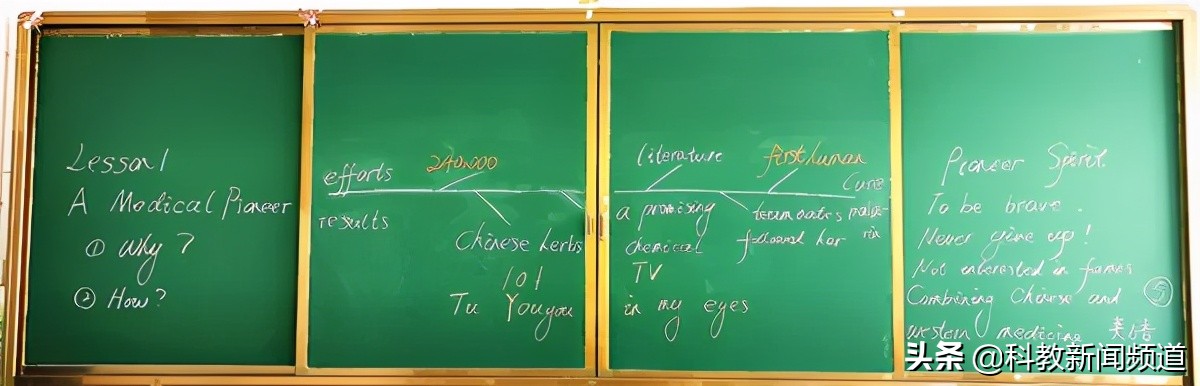 Lesson 1
A Medical Pioneer
① Why?
② How?
efforts
240,000
results
Chinese herbs
101
Tu Youyou
literature
first human
Cure
a promising
chemical
team
followed her
TV
in my eyes
Pioneer Spirit
To be brave.
Never give up!
Not interested in fames
Combining Chinese and
western medicine
⑤
头条 @科教新闻频道